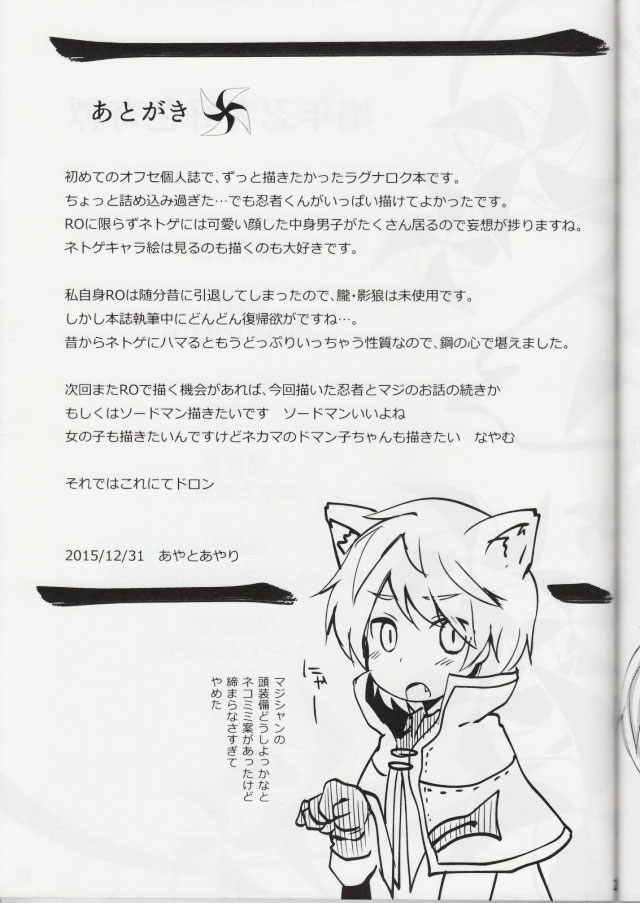 あとがき
初めてのオフセ個人誌で、ずっと描きたかったラグナロク本です。
ちょっと詰め込み過ぎた…でも忍者くんがいっぱい描けてよかったです。
ROに限らずネトゲには可愛い顔した中身男子がたくさん居るので妄想が捗りますね。
ネトゲキャラ絵は見るのも描くのも大好きです。
私自身ROは随分昔に引退してしまったので、朧・影狼は未使用です。
しかし本誌執筆中にどんどん復帰欲がですね…。
昔からネトゲにハマるともうどっぷりいっちゃう性質なので、鋼の心で堪えました。
次回またROで描く機会があれば、今回描いた忍者とマジのお話の続きか
もしくはソードマン描きたいです　ソードマンいいよね
女の子も描きたいんですけどネカマのドマン子ちゃんも描きたい　なやむ
それではこれにてドロン
2015/12/31　あやとあやり
マジシャンの
頭装備どうしよっかなと
ネコミミ案があったけど
締まらなさすぎて
やめた
にゃー